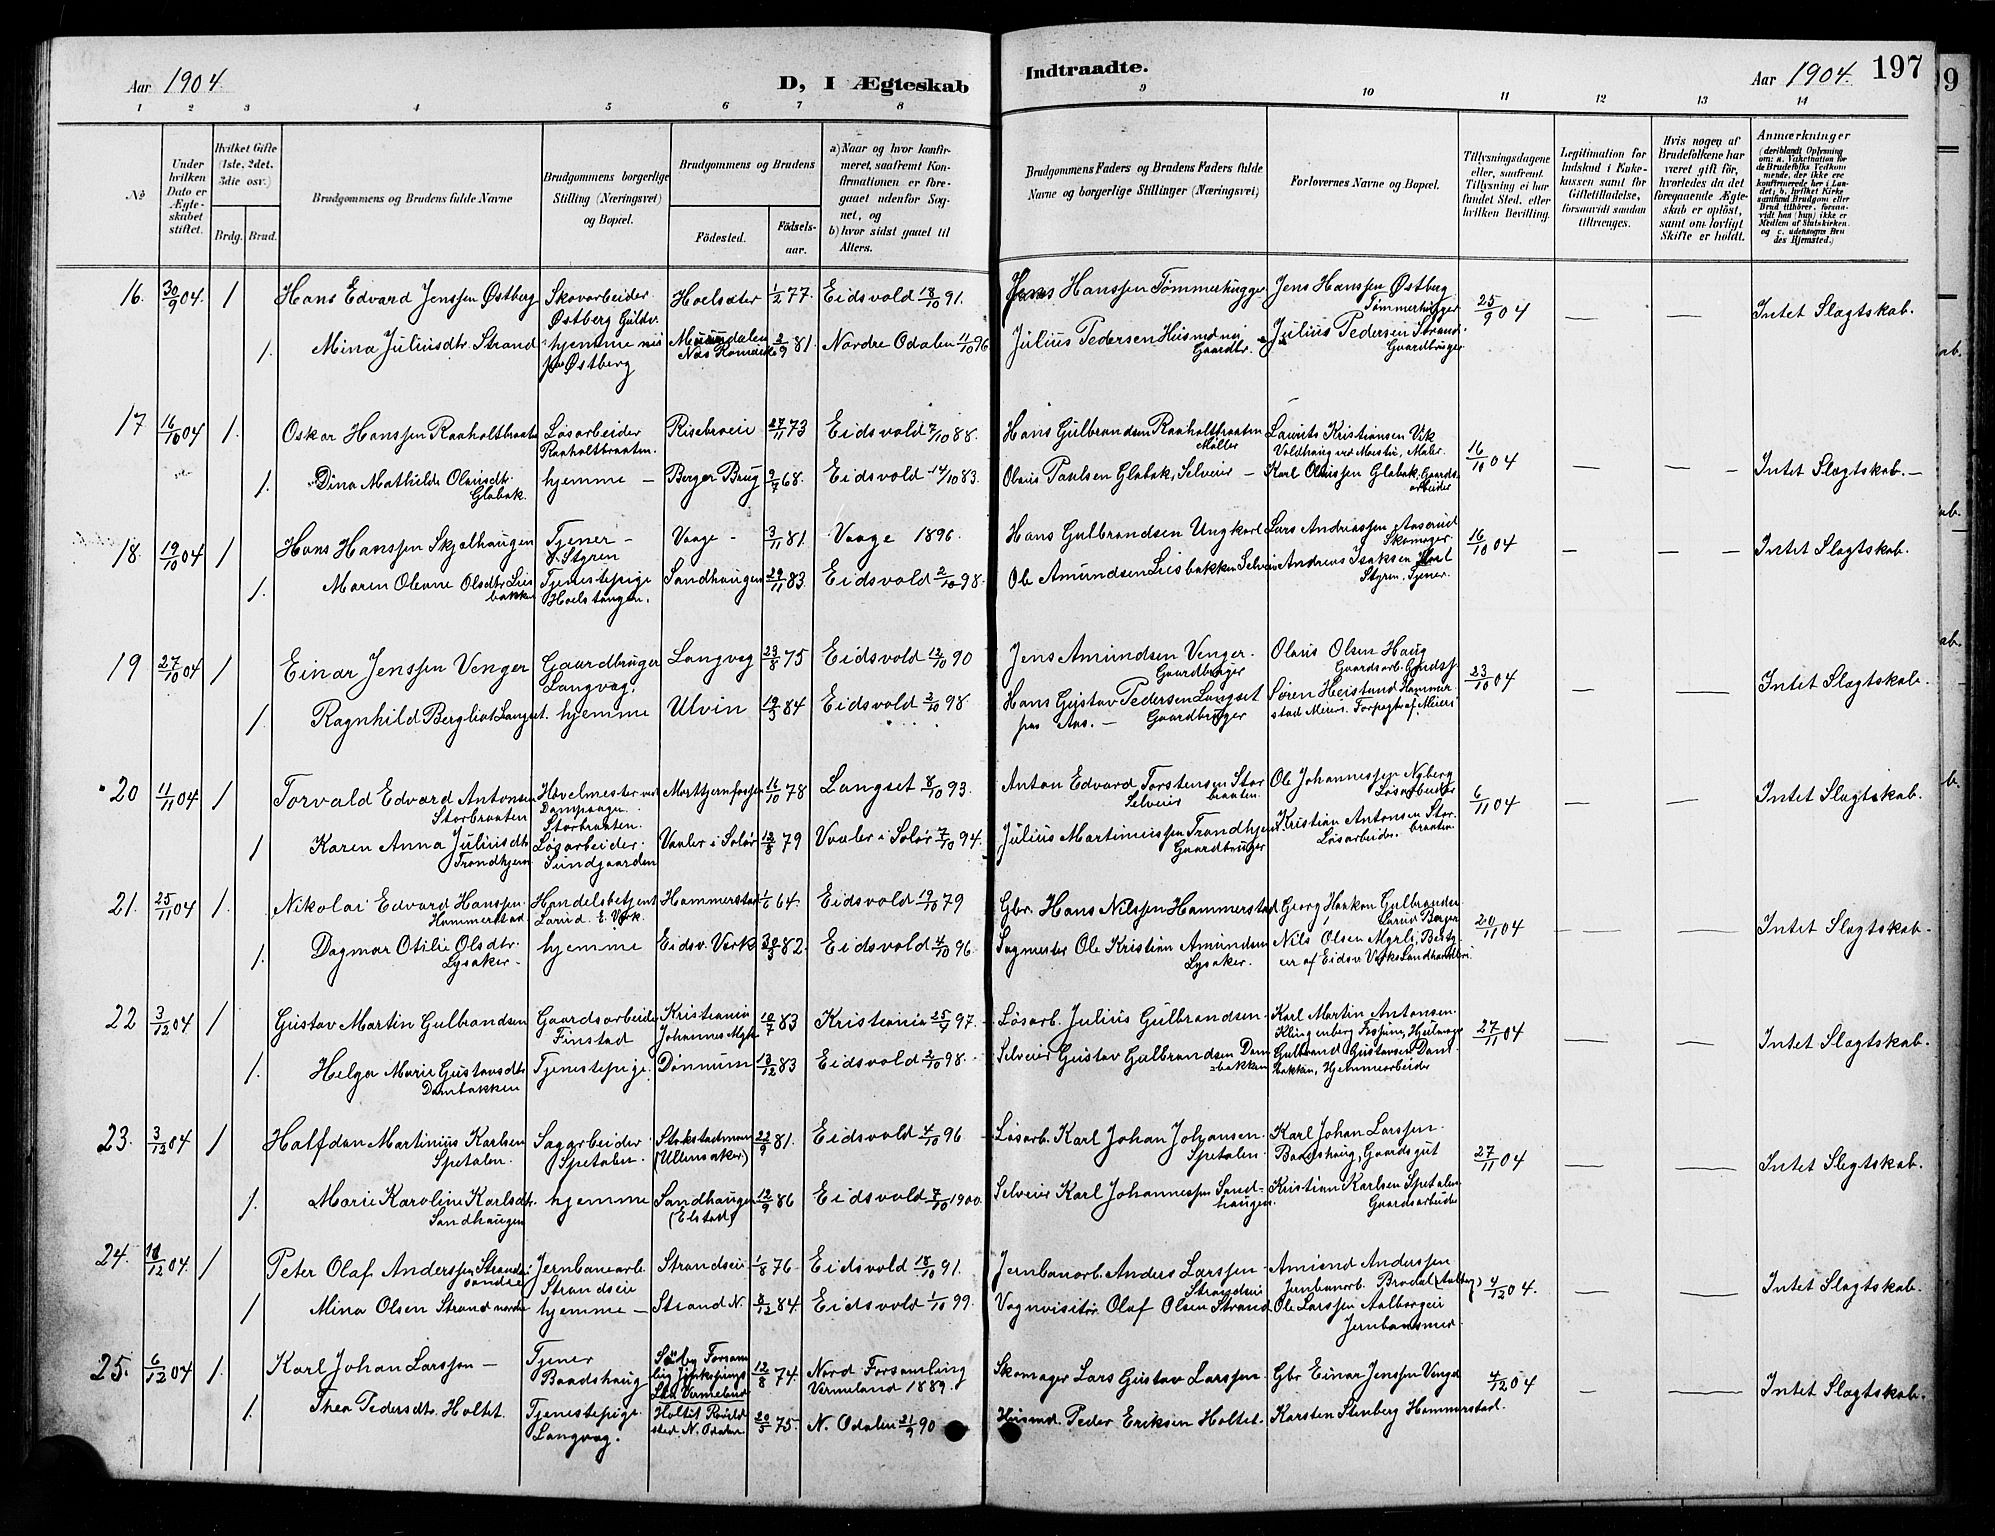 Aar 1904.
D, I Ægteskab
Indtraadte.
Aar 1904.
197
1 2 3 4 5 6 7 8 9 10 11 12 13 14
No
Under hvilken Dato er Ægteskabet stiftet.
Hvilket Gifte (1ste, 2det, 3die osv.)
Brdg. Brud.
Brudgommens og Brudens fulde Navne
Brudgommens borgerlige Stilling (Næringsvei) og Bopæl.
Brudgommens og Brudens
Födested.
Födselsaar.
a) Naar og hvor konfirmeret, saafremt Konfirmationen er foregaaet udenfor Sognet, og
b) hvor sidst gaaet til Alters.
Brudgommens Faders og Brudens Faders fulde Navne og borgerlige Stillinger (Næringsvei)
Forlovernes Navne og Bopæl.
Tillysningsdagene eller, saafremt Tillysning ei har fundet Sted, efter hvilken Bevilling.
Legitimation for Indskud i Enkekassen samt for Giftetilladelse, forsaavidt saadan tiltrænges.
Hvis nogen af Brudefolkene har været gift før, hvorledes da det foregaaende Ægteskab er opløst, samt om lovligt Skifte er holdt.
Anmærkninger
16. 30/9 04. 1 Hans Edvard Jenssen Østberg Skovarbeider Østberg Guldv. Hoelsæter 1/2 77. Eidsvold 18/10 91. Jens Hanssen Tömmerhugger Jens Hanssen Østberg Tömmerhugger 25/9 04 — — Intet Slagtskab.
1. Mina Juliusdtr Strand hjemme Østberg Næs Romerike 2/9 81. Nordre Odalen 11/10 96 Julius Pedersen Gaardbr. Julius Pedersen Strand Gaardbruger
17 16/10 04 1. Oskar Hanssen Raaholtbraaten Løsarbeider Raaholtbraaten. Risebroeie 27/11 73 Eidsvold 7/10 88. Hans Gulbrandsen Raaholtbraaten Möller Laurits Kristiansen Vik Voldhaug Maler. 16/10 04 — — Intet Slagtskab. —
1. Dina Mathilde Olausdtr. Globak. hjemme — Berger Baug 2/7 68. Eidsvold 14/10 83. Olaus Paulsen Globak, Selveier — Karl Olaussen Globak, Gaardsarbeider
18. 19/10 04 1 Hans Hanssen Skjelhaugen Tjener — Styren Vaage - 3/11 81. Vaage 1896. Hans Gulbrandsen Ungkarl Lars Andreassen Aaserud Skomager 16/10 04 — — — Intet Slagtskab.
1. Maren Oleane Olsdtr Liebakken Tjenestepige Hoelstangen. Sandhaugen 29/11 83 Eidsvold 2/10 98. Ole Amundsen Liebakken Selveier Andreas Isaksen Styren. Tjener.
19 27/10 04 1 Einar Jenssen Venger Gaardbruger Langvag. Langvag 23/8 75 Eidsvold 12/10 90 Jens Amundsen Venger. Gaardbruger Olaus Olsen Haug Gaardsarb. 23/10 04 — — Intet Slagtskab.
1 Ragnhild Bergliot Langset. hjemme Ulvin 19/3 84 Eidsvold 2/10 98. Hans Gustav Pedersen Langset paa Aas. — Gaardbruger Søren Heistand Hammerstad Meieri. Forpagter af Meieri
20 11/11 04 1 Torvald Edvard Antonsen Storbraaten Hövelmester ved Dampsagen. Storbraaten. Morttjernfossen 16/10 78 Langset 8/10 93. Anton Edvard Torstensen Storbraaten. Selveier Ole Johannessen Nyberg Løsarbeider 6/11 04 — — Intet Slagtskab.
1 Karen Anna Juliusdtr Trondhjem Løsarbeider. Sundgaarden Vaaler i Solör 12/8 79 Vaaler i Solör 7/10 94. Julius Martinussen Trondhjem Gaardbruger Kristian Antonsen Storbraaten Løsarbeider.
21. 25/11 04 1. Nikolai Edvard Hanssen Hammerstad Handelsbetjent E. Verk. Hammerstad 1/6 64. Eidsvold 19/10 79 Gbr. Hans Nilssen Hammerstad Georg Haakon Gulbrandsen 20/11 04 — — Intet Slagtskab.
1. Dagmar Otilie Olsdtr. Lysaker. hjemme Eidsv. Verk 30/3 82. Eidsvold 4/10 96. Sagmester Ole Kristian Amundsen Lysaker. Nils Olsen Myrli, Bestyrer af Eidsv. Verks Landhandleri.
22 3/12 04 1 Gustav Martin Gulbrandsen Gaardsarbeider Finstad Kristiania Johannes Mgh. 10/7 83 Kristiania 25/4 97. Løsarb. Julius Gulbrandsen. Karl Martin Antonsen. Klingenberg 27/11 04 — — Intet Slagtskab.
1. Helga Marie Gustavsdtr Dambakken Tjenestepige. Dönnum 13/12 83 Eidsvold 2/10 98. Selveier Gustav Gulbrandsen Dambakken Gulbrand Gustavsen Dambakken, Hjemmearbeider
23. 3/12 04 1 Halfdan Martinius Karlsen Spetalen. Sagarbeider Spetalen. (Ullensaker.) 22/9 81. Eidsvold 4/10 96. Løsarb. Karl Johan Johansen. Spetalen. Karl Johan Larssen. Baadshaug, Gaardsgut 27/11 04 — — Intet Slegtskab.
1. Marie Karoline Karlsdtr. Sandhaugen hjemme Sandhaugen (Elstad) 12/9 86 Eidsvold 7/10 1900. Selveier Karl Johannessen Sandhaugen. Kristian Karlsen Spetalen Gaardsarbeider
24. 10/12 04. 1 Peter Olaf Anderssen Strands Jernbanearb. Strandseie Strandseie 1/8 76 Eidsvold 18/10 91. Jernbanarb. Anders Larssen Strandseie Amund Anderssen Jernbanarb. 4/12 04. — — Intet Slagtskab.
1 Mina Olsen Strand nordre hjemme — Strand N. 8/12 84 Eidsvold 1/10 99. Vognvisitör Olaf Olsen Strand Ole Larssen Aalborgeie
25. 6/12 04 1. Karl Johan Larssen — Tjener Baadshaug 12/8 74. Nord Forsamling Vermeland 1889. Skomager Lars Gustav Larssen. Gbr. Einar Jenssen Venger 4/12 04 — — Intet Slagtskab.
1. Thea Pedersdtr. Holtet. Tjenestepige Langvag. Holtet N. Odalen 20/5 75. N. Odalen 21/9 90 Husmd. Peder Eriksen Holtet. Karsten Stenberg Hammerstad.